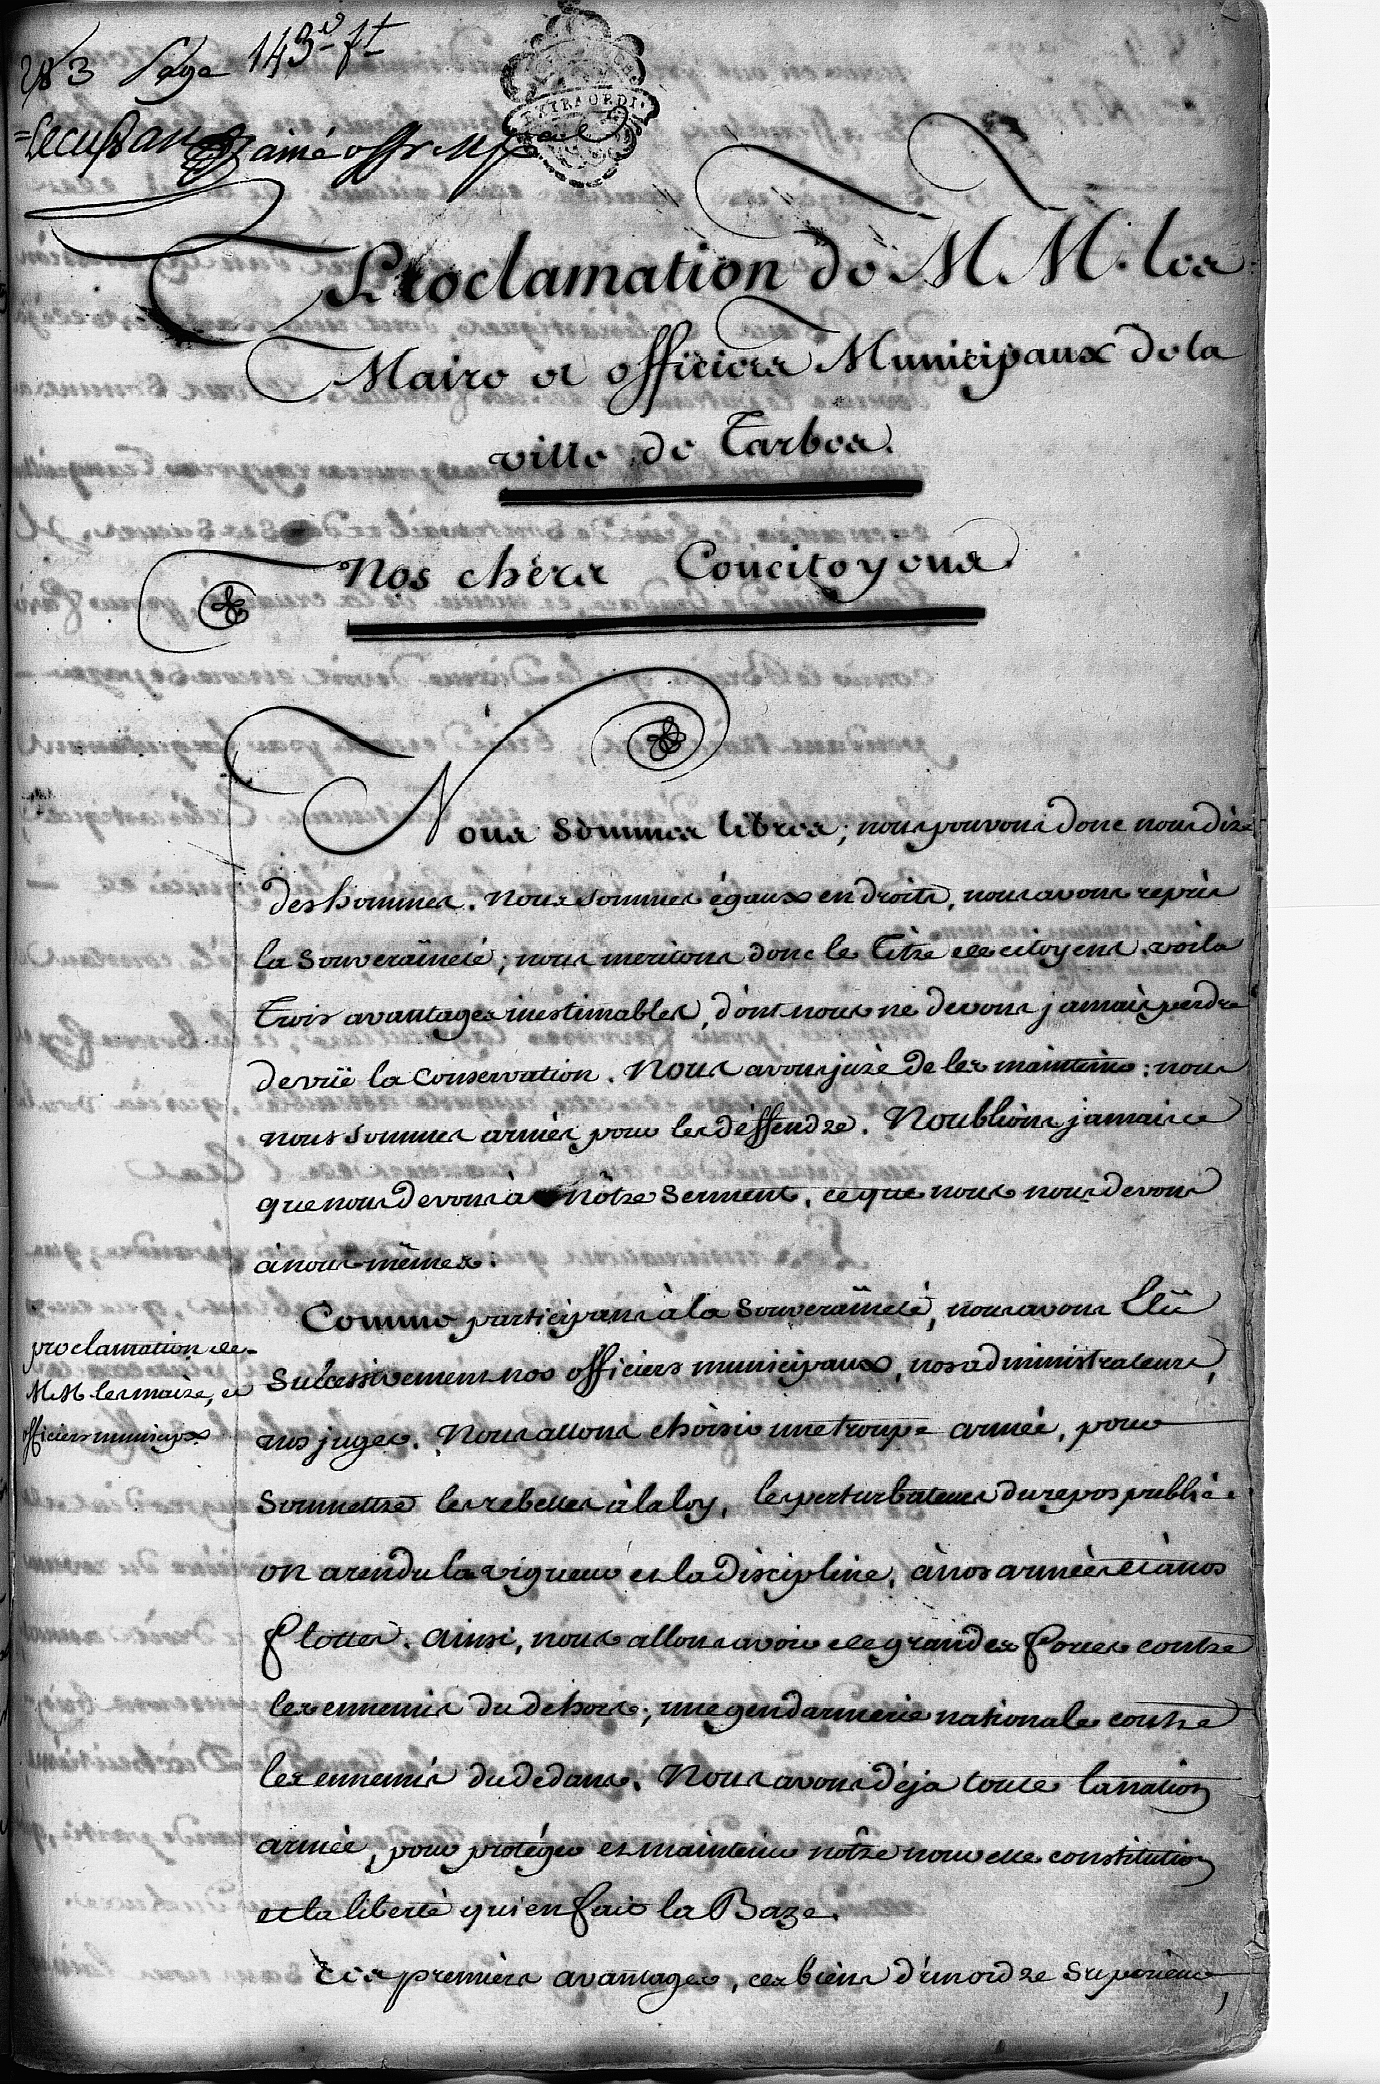 Page 143e ft
ainé offr mpal
EXTRAORDI
Proclamation de M M. les
Maire et officiers Municipaux de la
ville de Tarbes.
Nos chèrs Concitoyens
Nous sommes libres; nous pouvons donc nous dire
des hommes. nous sommes égaux en droits, nous avons repris
la souveraïneté; nous meritons donc le titre de citoyens. voila
trois avantages inestimables, dont nous ne devons jamais perdre
de vuë la conservation. Nous avons juré de les maintenir: nous
nous sommes armés pour les déffendre. Noublions jamais ce
que nous devons à nôtre serment, ce que nous nous devons
à nous mêmes.
Comme participans à la souveraïneté, nous avons Elü
sucessivement nos officiers municipaux, nos administrateurs,
nos juges. Nous allons choisir une troupe armée, pour
soumettre les rebelles à la loy, les perturbateurs du repos public.
on a rendu la vigueur et la discipline, à nos armées et à nos
flottes. ainsi, nous allons avoir de grandes forces contre
les ennemis du dehors; une gendarmerie nationale contre
les ennemis du dedans. Nous avons déja toute la nation
armée, pour protéger et maintenir nôtre nouvelle constitution
et la liberté qui en fait la Baze.
proclamation de
M M les maire, et
officiers municipx
Ces premiers avantages, ces biens d'un ordre superieur,